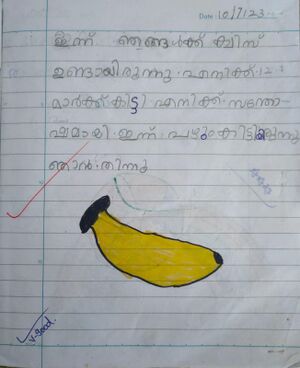 Date: 10/7/23
ഇന്ന് ഞങ്ങൾക്ക് ക്വിസ്
ഉണ്ടായിരുന്നു. എനിക്ക് 12
മാർക്ക് കിട്ടി എനിക്ക് സന്തോ-
ഷമായി. ഇന്ന് പഴംകിട്ടിയിരുന്നു
ഞാൻ തിന്നു
V. good